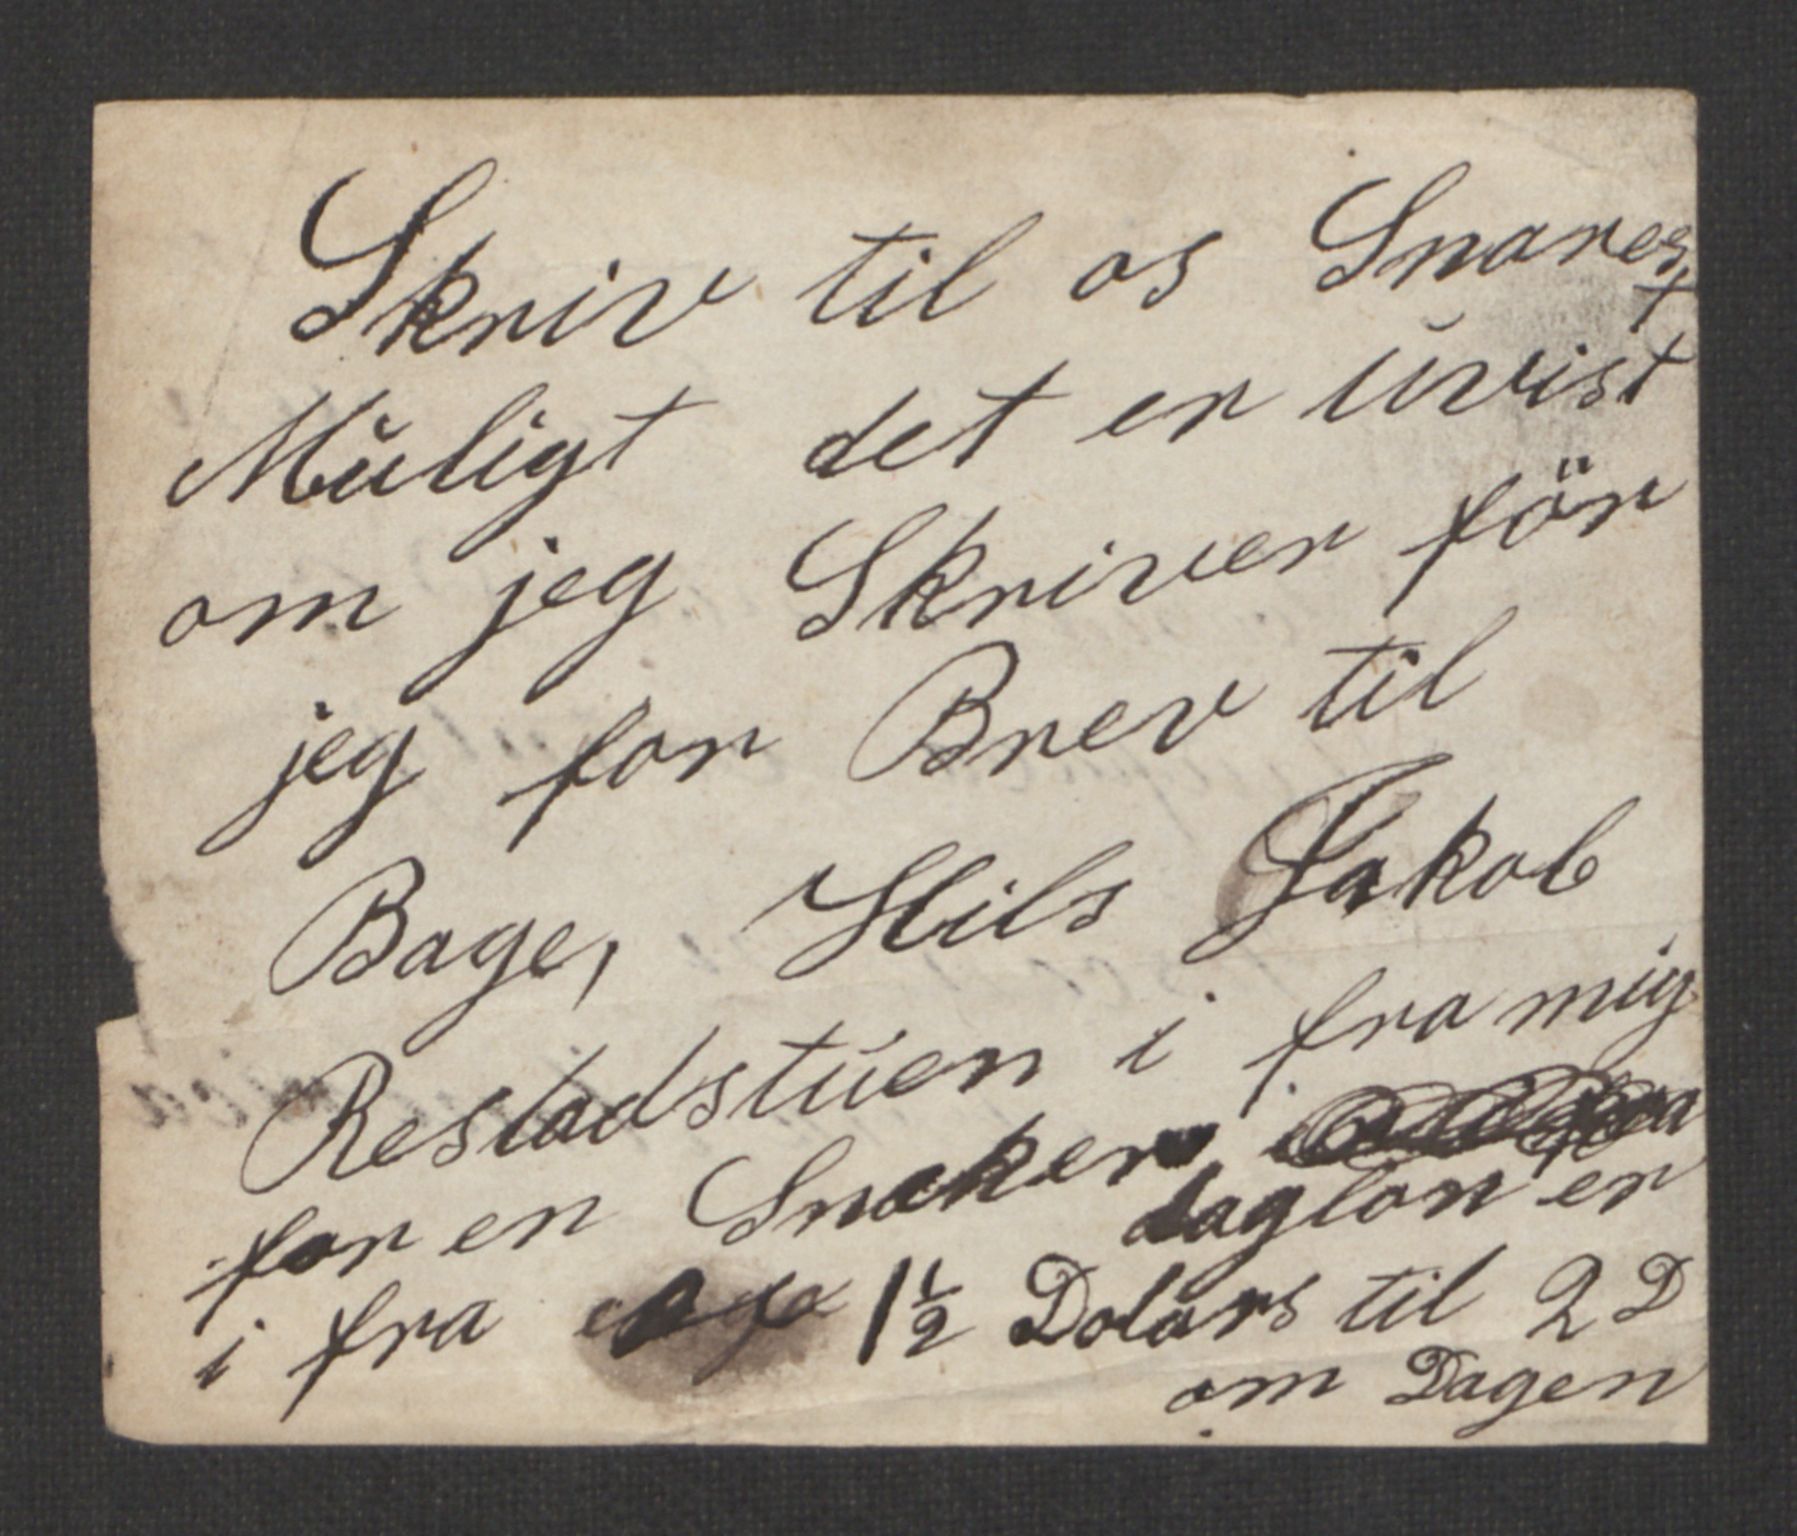 Skriv til os Snarest
Muligt det er uvist
om jeg Skriver för
jeg for Brev til
Bage, Hils Jakob
Restadstuen i fra mig
for en Snøker
daglön er
i fra 1½ Dolars til 2 D
om Dagen